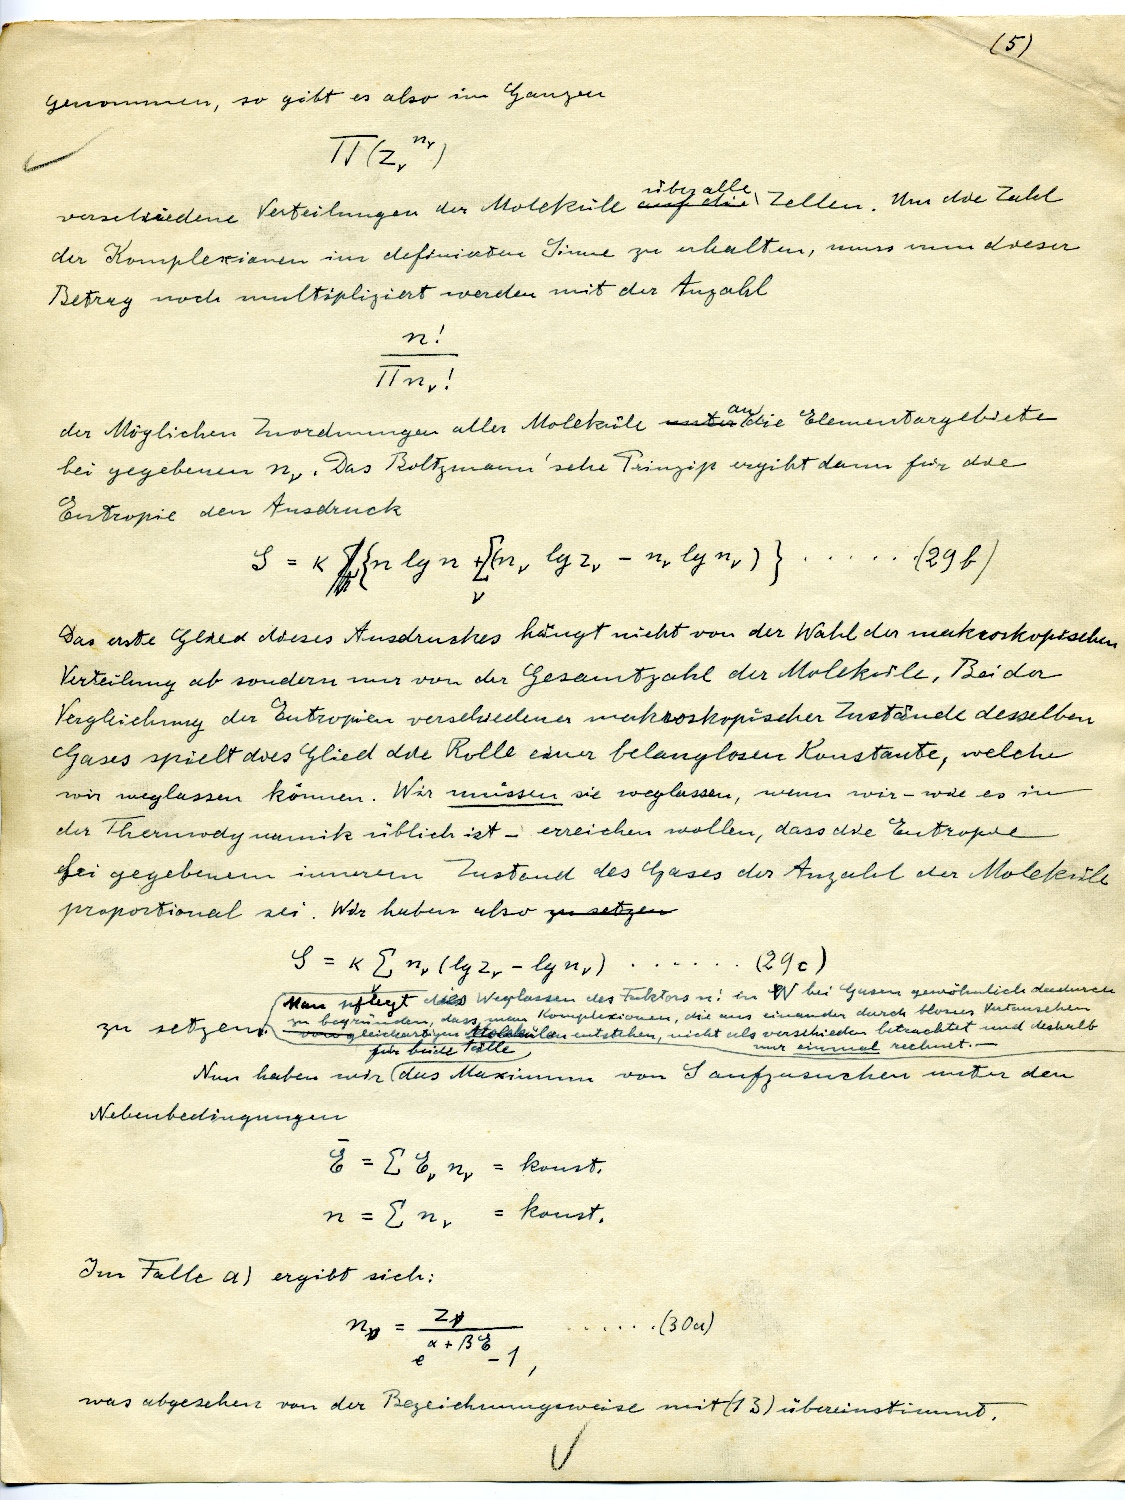 (5)
genommen, so gibt es also im Ganzen
Π(z_ν^{n_ν})
verschiedene Verteilungen der Moleküle ~~auf die~~ über alle Zellen. Um die Zahl
der Komplexionen im definierten Sinne zu erhalten, muss nun dieser
Betrag noch multipliziert werden mit der Anzahl
n!
Πn_ν!
der Möglichen Zuordnungen aller Moleküle ~~unter~~ an die Elementargebiete
bei gegebenen n_ν. Das Boltzmann'sche Prinzip ergibt dann für die
Entropie den Ausdruck
S = κ {n lg n + Σ_ν (n_ν lg z_ν − n_ν lg n_ν)} . . . . . . (29b)
Das erste Glied dieses Ausdruckes hängt nicht von der Wahl der makroskopischen
Verteilung ab sondern nur von der Gesamtzahl der Moleküle. Bei der
Vergleichung der Entropien verschiedener makroskopischer Zustände desselben
Gases spielt dies Glied die Rolle einer belanglosen Konstante, welche
wir weglassen können. Wir müssen sie weglassen, wenn wir – wie es in
der Thermodynamik üblich ist – erreichen wollen, dass die Entropie
bei gegebenem inneren Zustand des Gases der Anzahl der Moleküle
proportional sei. Wir haben also ~~zu setzen~~
S = κ Σ_ν n_ν (lg z_ν − lg n_ν) . . . . . . . (29c)
zu setzen.
(Man pflegt dies Weglassen des Faktors n! in W bei Gasen gewöhnlich dadurch
zu begründen, dass man Komplexionen, die aus einander durch blosses Vertauschen
von gleichartigen Molekülen entstehen, nicht als verschieden betrachtet und deshalb
nur einmal rechnet. –
Nun haben wir für beide Fälle das Maximum von S aufzusuchen unter den
Nebenbedingungen
Ē = Σ E_ν n_ν = konst.
n = Σ n_ν = konst.
Im Falle a) ergibt sich:
n_ν = z_ν / (e^{α + βE} − 1), . . . . . . (30a)
was abgesehen von der Bezeichnungsweise mit (13) übereinstimmt.